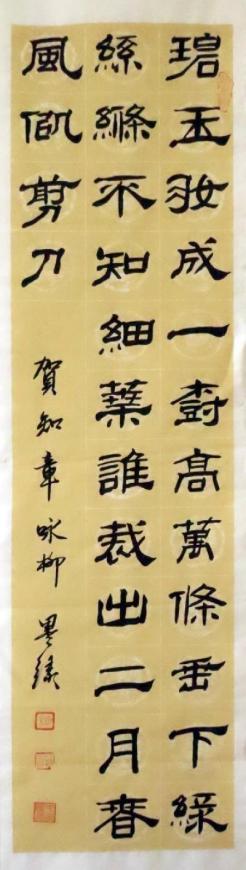 碧玉妝成一樹髙萬條垂下綠
絲縧不知細葉誰裁出二月春
風佀剪刀
賀知章咏柳